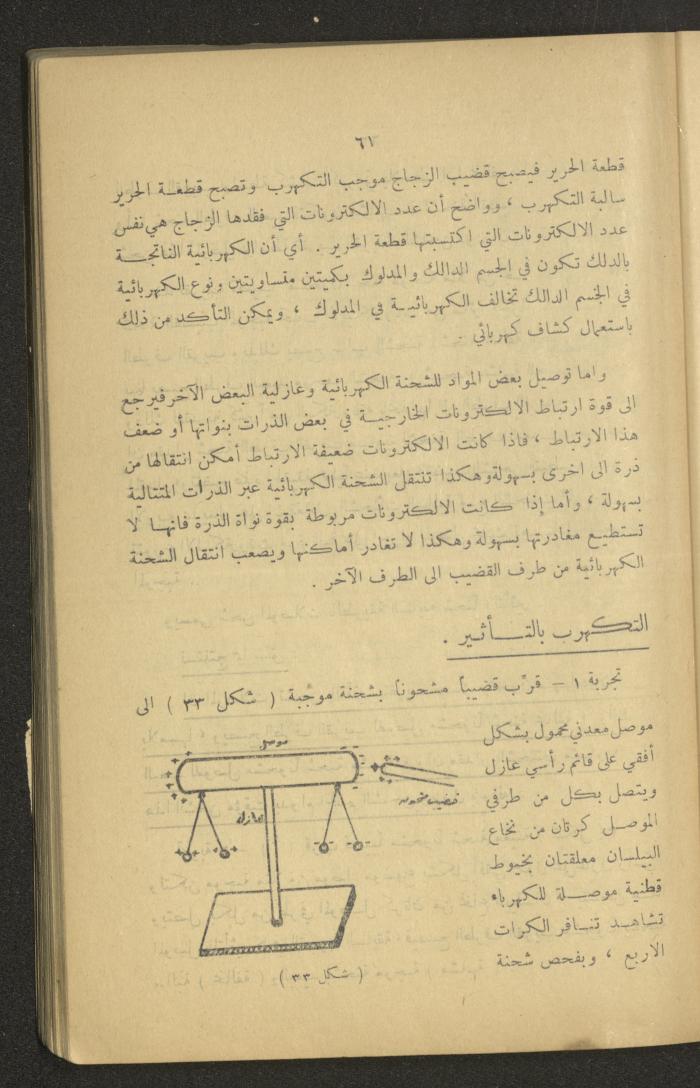 ٦١
قطعة الحرير فيصبح قضيب الزجاج موجب التكهرب وتصبح قطعة الحرير
سالبة التكهرب ، وواضح أن عدد الالكترونات التي فقدها الزجاج هي نفس
عدد الالكترونات التي اكتسبتها قطعة الحرير . أي أن الكهربائية الناتجة
بالدلك تكون في الجسم الدالك والمدلوك بكميتين متساويتين ونوع الكهربائية
في الجسم الدالك تخالف الكهربائية في المدلوك ، ويمكن التأكد من ذلك
باستعمال كشاف كهربائي .
واما توصيل بعض المواد للشحنة الكهربائية وعازلية البعض الآخر فيرجع
الى قوة ارتباط الالكترونات الخارجية في بعض الذرات بنواتها أو ضعف
هذا الارتباط ، فاذا كانت الالكترونات ضعيفة الارتباط أمكن انتقالها من
ذرة الى اخرى بسهولة وهكذا تنتقل الشحنة الكهربائية عبر الذرات المتتالية
بسهولة ، وأما إذا كانت الالكترونات مربوطة بقوة نواة الذرة فانها لا
تستطيع مغادرتها بسهولة وهكذا لا تغادر أماكنها ويصعب انتقال الشحنة
الكهربائية من طرف القضيب الى الطرف الآخر .
التكهرب بالتأثير .
تجربة ١ - قرّب قضيباً مشحوناً بشحنة موجبة ( شكل ٣٣ ) الى
موصل معدني محمول بشكل
أفقي على قائم رأسي عازل
ويتصل بكل من طرفي
الموصل كرتان من نخاع
البيلسان معلقتان بخيوط
قطنية موصلة للكهرباء
تشاهد تنافر الكرات
الاربع ، وبفحص شحنة
موصل
قضيب مشحون
عازل
( شكل ٣٣ )